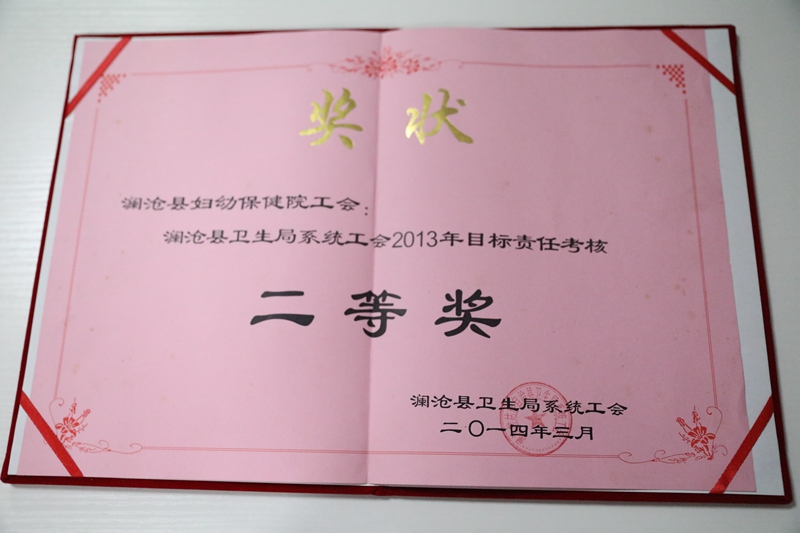 奖状
澜沧县妇幼保健院工会：
澜沧县卫生局系统工会2013年目标责任考核
二等奖
澜沧县卫生局系统工会
二〇一四年三月